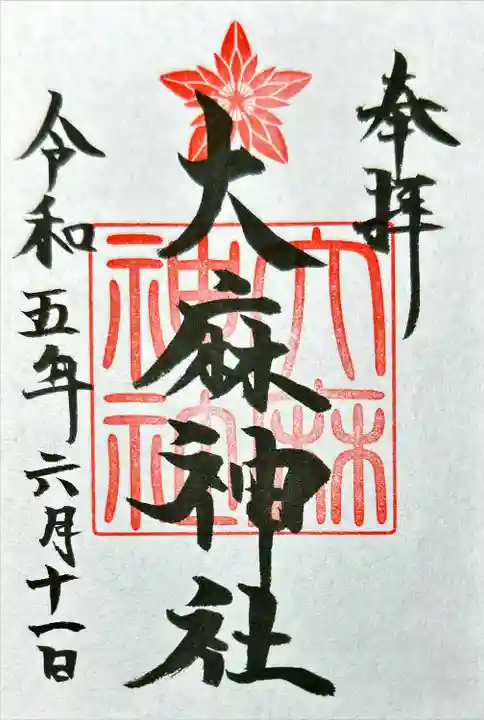 奉拝
大麻神社
大麻神社
令和五年六月十一日